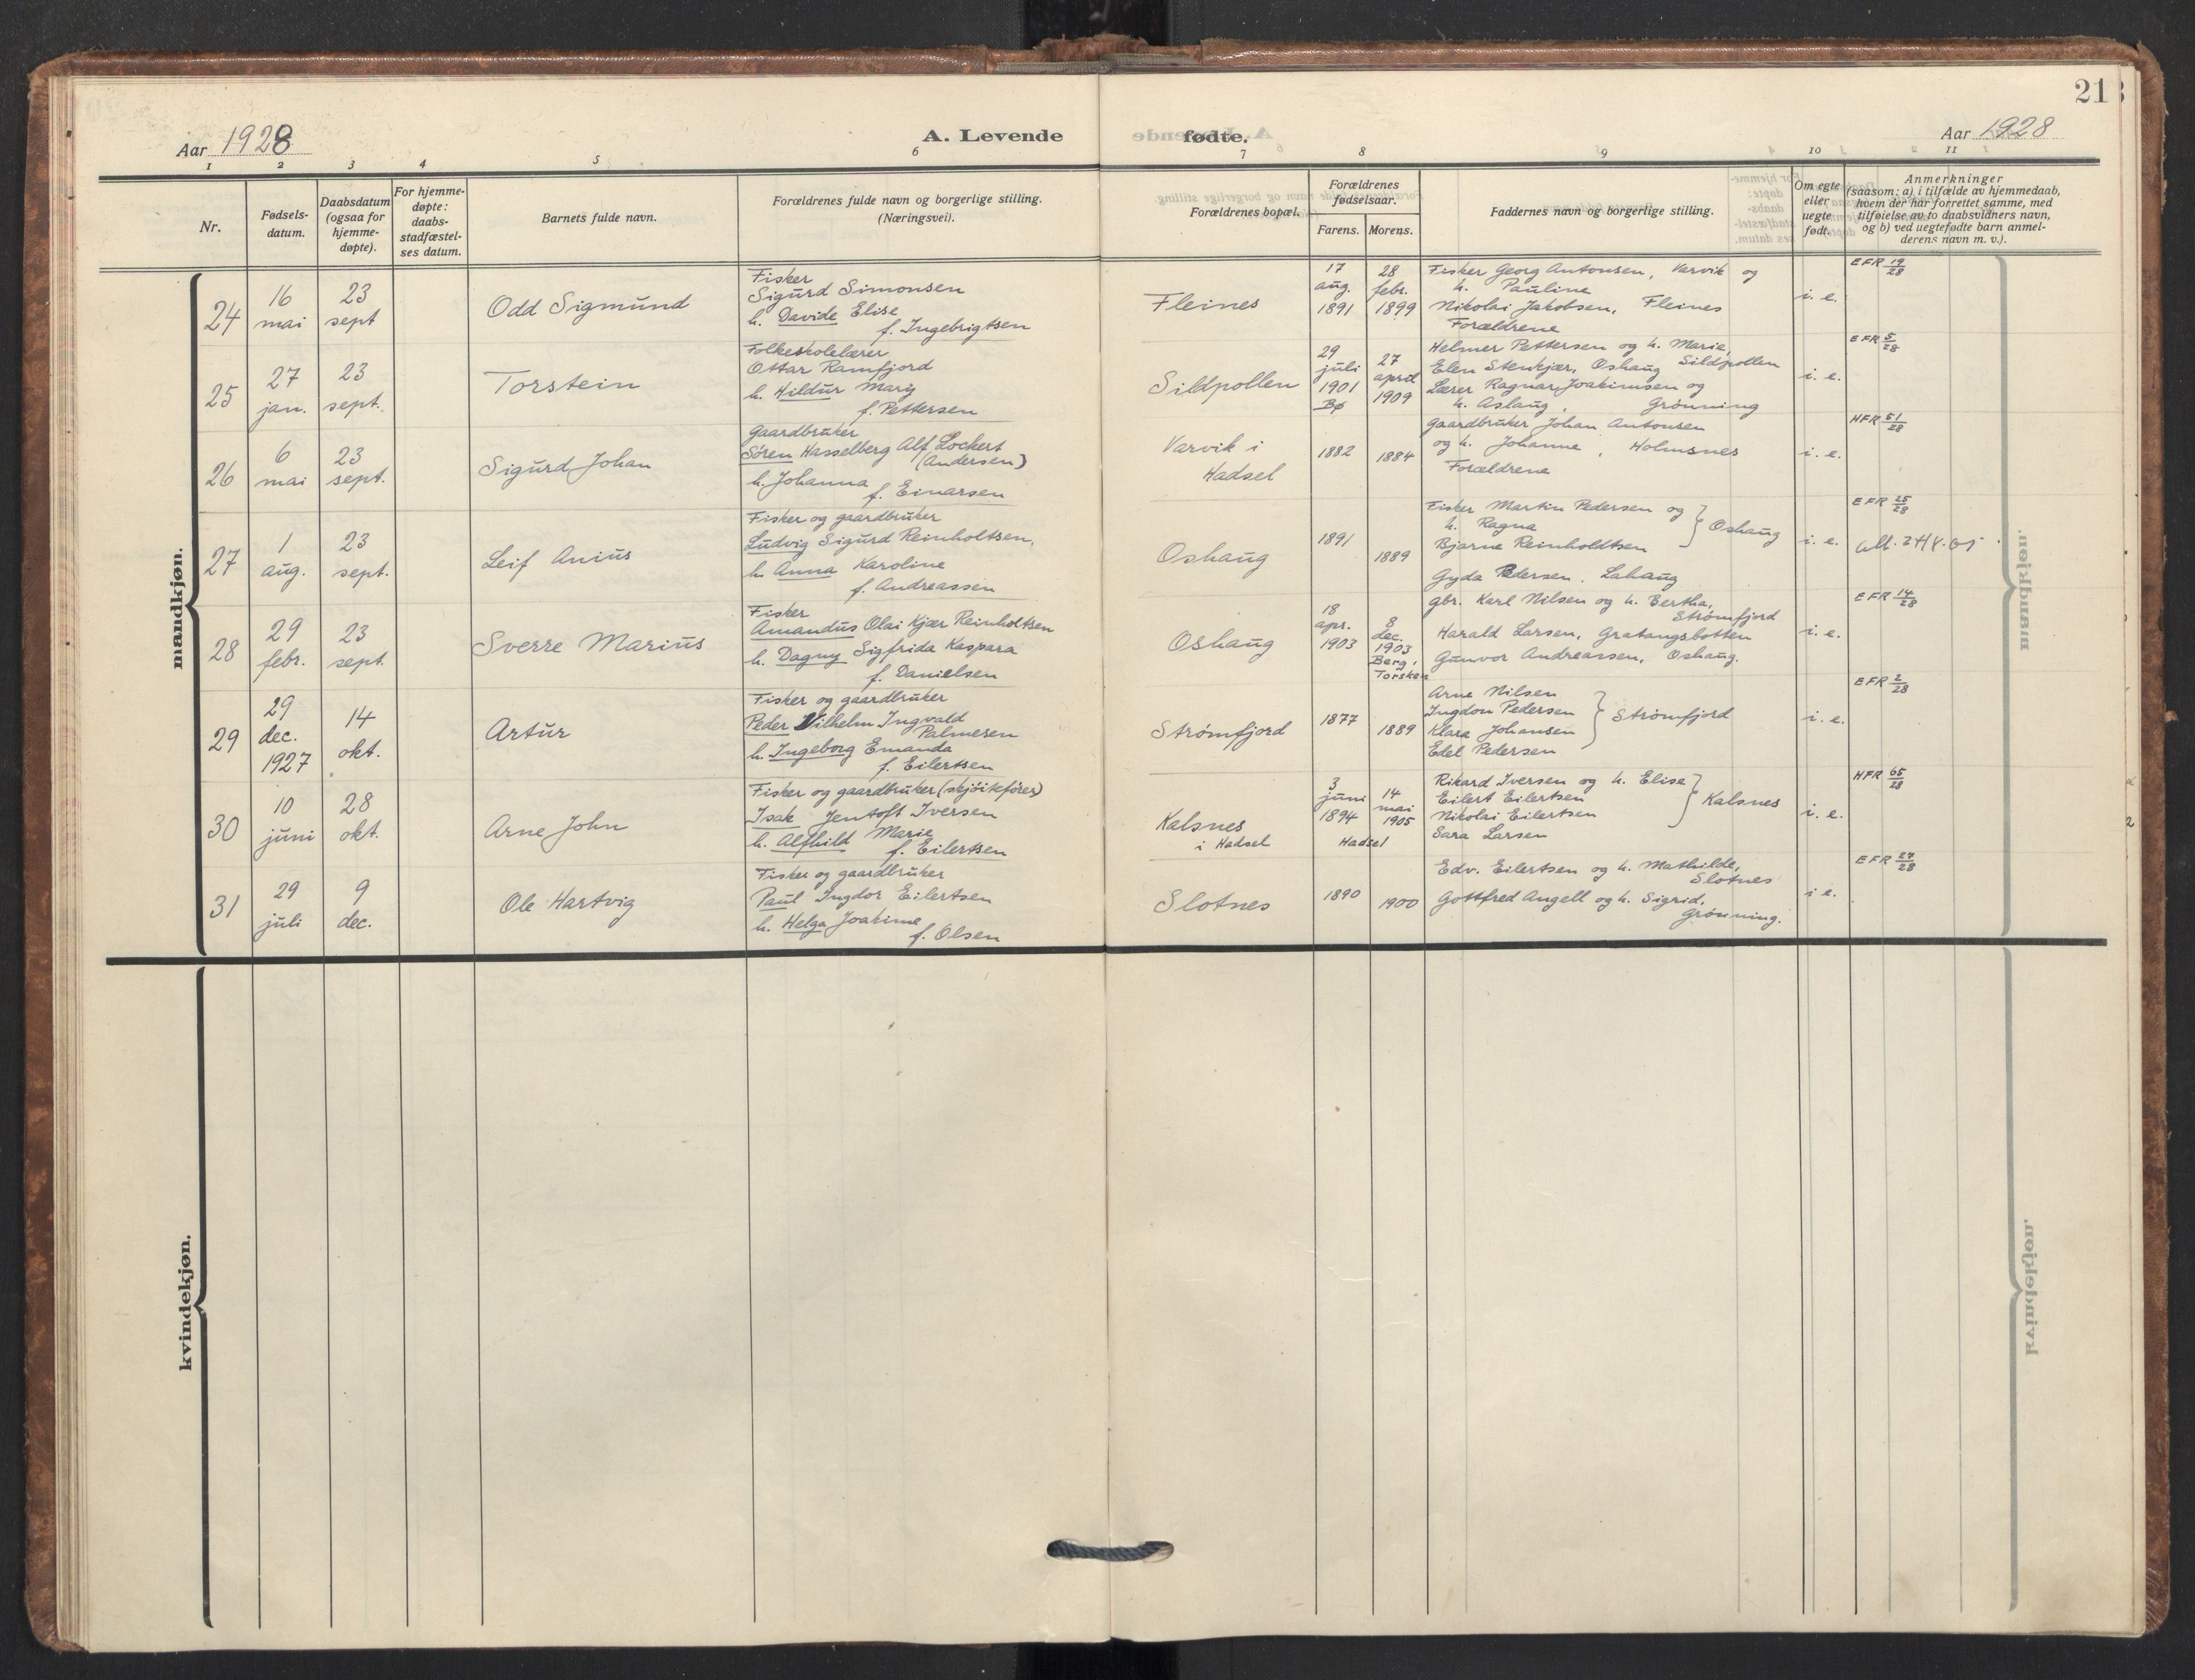 21
Aar 1928
A. Levende
fødte.
Aar 1928
1 2 3 4 5 6 7 8 9 10 11
Nr.
Fødsels-
datum.
Daabsdatum
(ogsaa for
hjemme-
døpte).
For hjemme-
døpte:
daabs-
stadfæstel-
ses datum.
Barnets fulde navn.
Forældrenes fulde navn og borgerlige stilling.
(Næringsvei).
Forældrenes bopæl.
Forældrenes
fødselsaar.
Farens. Morens.
Faddernes navn og borgerlige stilling.
Om egte
eller
uegte
født.
Anmerkninger
(saasom: a) i tilfælde av hjemmedaab,
hvem der har forrettet samme, med
tilføielse av to daabsvidners navn,
og b) ved uegtefødte barn anmel-
derens navn m. v.).
mandkjøn.
24
16
mai
23
sept
Odd Sigmund
Fisker
Sigurd Simonsen
h. Davide Elise
f. Ingebrigtsen
Fleines
17
aug.
1891
28
febr.
1899
Fisker Georg Antonsen, Varvik og
h. Pauline
Nikolai Jakobsen, Fleines
Forældrene
i. e.
EFR 19/28
25
27
jan.
23
sept.
Torstein
Folkeskolelærer
Ottar Ramfjord
h. Hildur Mary
f. Pettersen
Sildpollen
29
juli
1901
Bø
27
april
1909
Helmer Pettersen og h. Marie,
Sildpollen
Elen Stenkjær, Oshaug
Lærer Ragnar Joakimsen og
h. Aslaug, Grönning
i. e.
EFR 5/28
26
6
mai
23
sept.
Sigurd Johan
Gaardbruker
Søren Hasselberg Alf Lockert
(Andersen)
h. Johanna
f. Einarsen
Varvik i
Hadsel
1882
1884
Gaardbruker Johan Antonsen
og h. Johanne, Holmsnes
Forældrene
i. e.
HFR 51/28
27
1
aug.
23
sept.
Leif Anius
Fisker og gaardbruker
Ludvig Sigurd Reinholtsen,
h. Anna Karoline
f. Andreassen
Oshaug
1891
1889
Fisker Martin Pedersen og
h. Ragna
Bjarne Reinholdtsen
Oshaug
Gyda Pedersen. Lahaug
i. e.
EFR 25/28
28
29
febr.
23
sept.
Sverre Marius
Fisker
Amandus Olai Kjær Reinholtsen
h. Dagny Sigfrida Kaspara
f. Danielsen
Oshaug
18
apr.
1903
8
dec.
1903
Berg,
Torsken
gbr. Karl Nilsen og h. Bertha,
Strømfjord
Harald Larsen, Gratangsbotten
Gunvor Andreassen, Oshaug.
i. e.
EFR 14/28
29
29
dec.
1927
14
okt.
Artur
Fisker og gaardbruker
Peder Vilhelm Ingvald
Palmesen
h. Ingeborg Emanda
f. Eilertsen
Strømfjord
1877
1889
Arne Nilsen
Ingdon Pedersen
Klara Johansen
Edel Pedersen
Strømfjord
i. e.
EFR 2/28
30
10
juni
28
okt.
Arne John
Fisker og gaardbruker (skjöitefører)
Isak Jentoft Iversen
h. Alfhild Marie
f. Eilertsen
Kalsnes
i Hadsel
3
juni
1894
14
mai
1905
Hadsel
Rikard Iversen og h. Elise
Eilert Eilertsen
Nikolai Eilertsen
Sara Larsen
Kalsnes
i. e.
HFR 65/28
31
29
juli
9
dec.
Ole Hartvig
Fisker og gaardbruker
Paul Ingdor Eilertsen
h. Helga Joakime
f. Olsen
Slotnes
1890
1900
Edv. Eilertsen og h. Mathilde,
Slotnes
Gottfred Angell og h. Sigrid,
Grönning.
i e.
EFR 27/28
kvindekjøn.